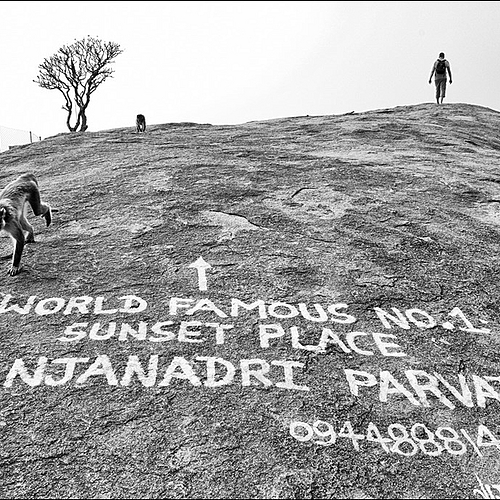 WORLD FAMOUS NO.1
SUNSET PLACE
NJANADRI PARVA
09448881